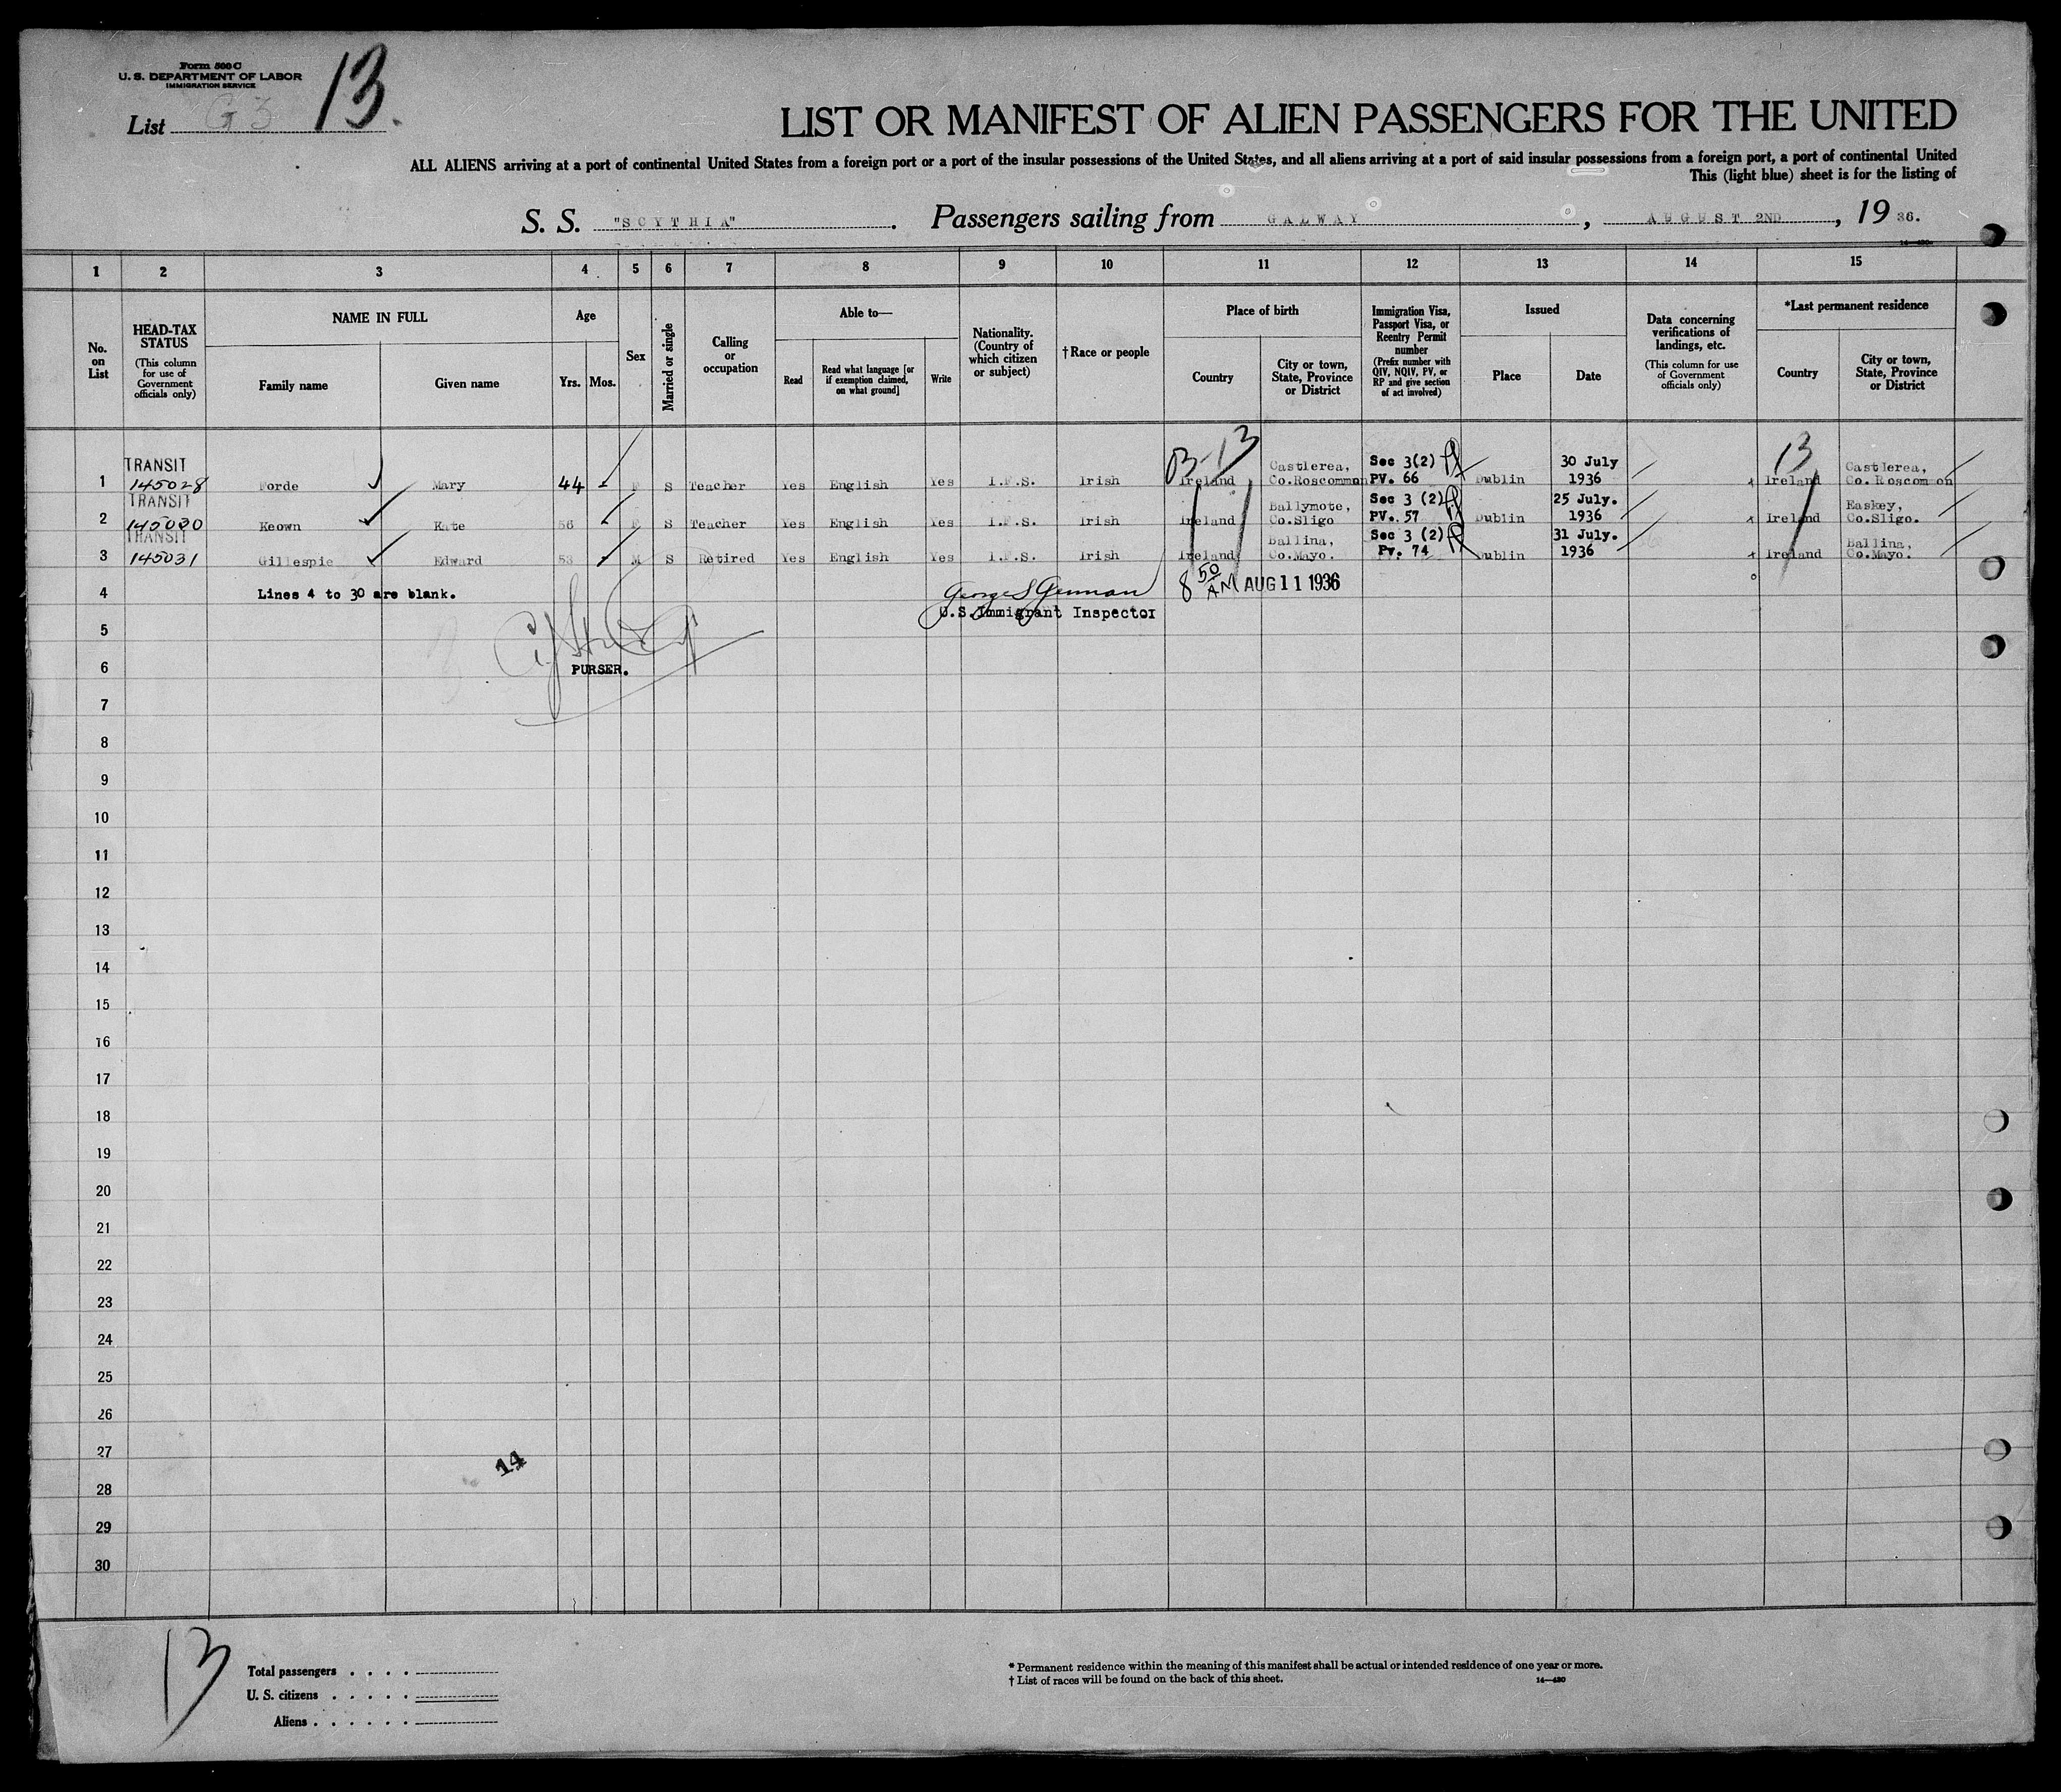 Form 500 C
U. S. DEPARTMENT OF LABOR
IMMIGRATION SERVICE
List G 3 13.
LIST OR MANIFEST OF ALIEN PASSENGERS FOR THE UNITED
ALL ALIENS arriving at a port of continental United States from a foreign port or a port of the insular possessions of the United States, and all aliens arriving at a port of said insular possessions from a foreign port, a port of continental United
This (light blue) sheet is for the listing of
S. S. "SCYTHIA". Passengers sailing from GALWAY, AUGUST 2ND, 19 36.
14—430
1 2 3 4 5 6 7 8 9 10 11 12 13 14 15
No. on List
HEAD-TAX STATUS
(This column for use of Government officials only)
NAME IN FULL
Family name
Given name
Age
Yrs.
Mos.
Sex
Married or single
Calling or occupation
Able to—
Read
Read what language [or if exemption claimed, on what ground]
Write
Nationality. (Country of which citizen or subject)
†Race or people
Place of birth
Country
City or town, State, Province or District
Immigration Visa, Passport Visa, or Reentry Permit number
(Prefix number with QIV, NQIV, PV, or RP and give section of act involved)
Issued
Place
Date
Data concerning verifications of landings, etc.
(This column for use of Government officials only)
*Last permanent residence
Country
City or town, State, Province or District
13 13
TRANSIT Castlerea, Sec 3(2) 30 July Castlerea,
1 145028 Forde Mary 44 F S Teacher Yes English Yes I.F.S. Irish Ireland Co.Roscommon PV. 66 Dublin 1936 Ireland Co. Roscommon
TRANSIT Ballymote, Sec 3 (2) 25 July. Easkey,
2 145030 Keown Kate 56 F S Teacher Yes English Yes I.F.S. Irish Ireland Co.Sligo PV. 57 Dublin 1936 Ireland Co.Sligo.
TRANSIT Ballina, Sec 3 (2) 31 July. Ballina,
3 145031 Gillespie Edward 53 M S Retired Yes English Yes I.F.S. Irish Ireland Co.Mayo. Pv. 74 Dublin 1936 Ireland Co.Mayo.
4 Lines 4 to 30 are blank. George S German 8 50 AM AUG 11 1936
U.S.Immigrant Inspector
5
6 PURSER.
7
8
9
10
11
12
13
14
15
16
17
18
19
20
21
22
23
24
25
26
27
14
28
29
30
13
Total passengers . . . .
U. S. citizens . . . . .
Aliens . . . . . .
* Permanent residence within the meaning of this manifest shall be actual or intended residence of one year or more.
† List of races will be found on the back of this sheet.
14—430